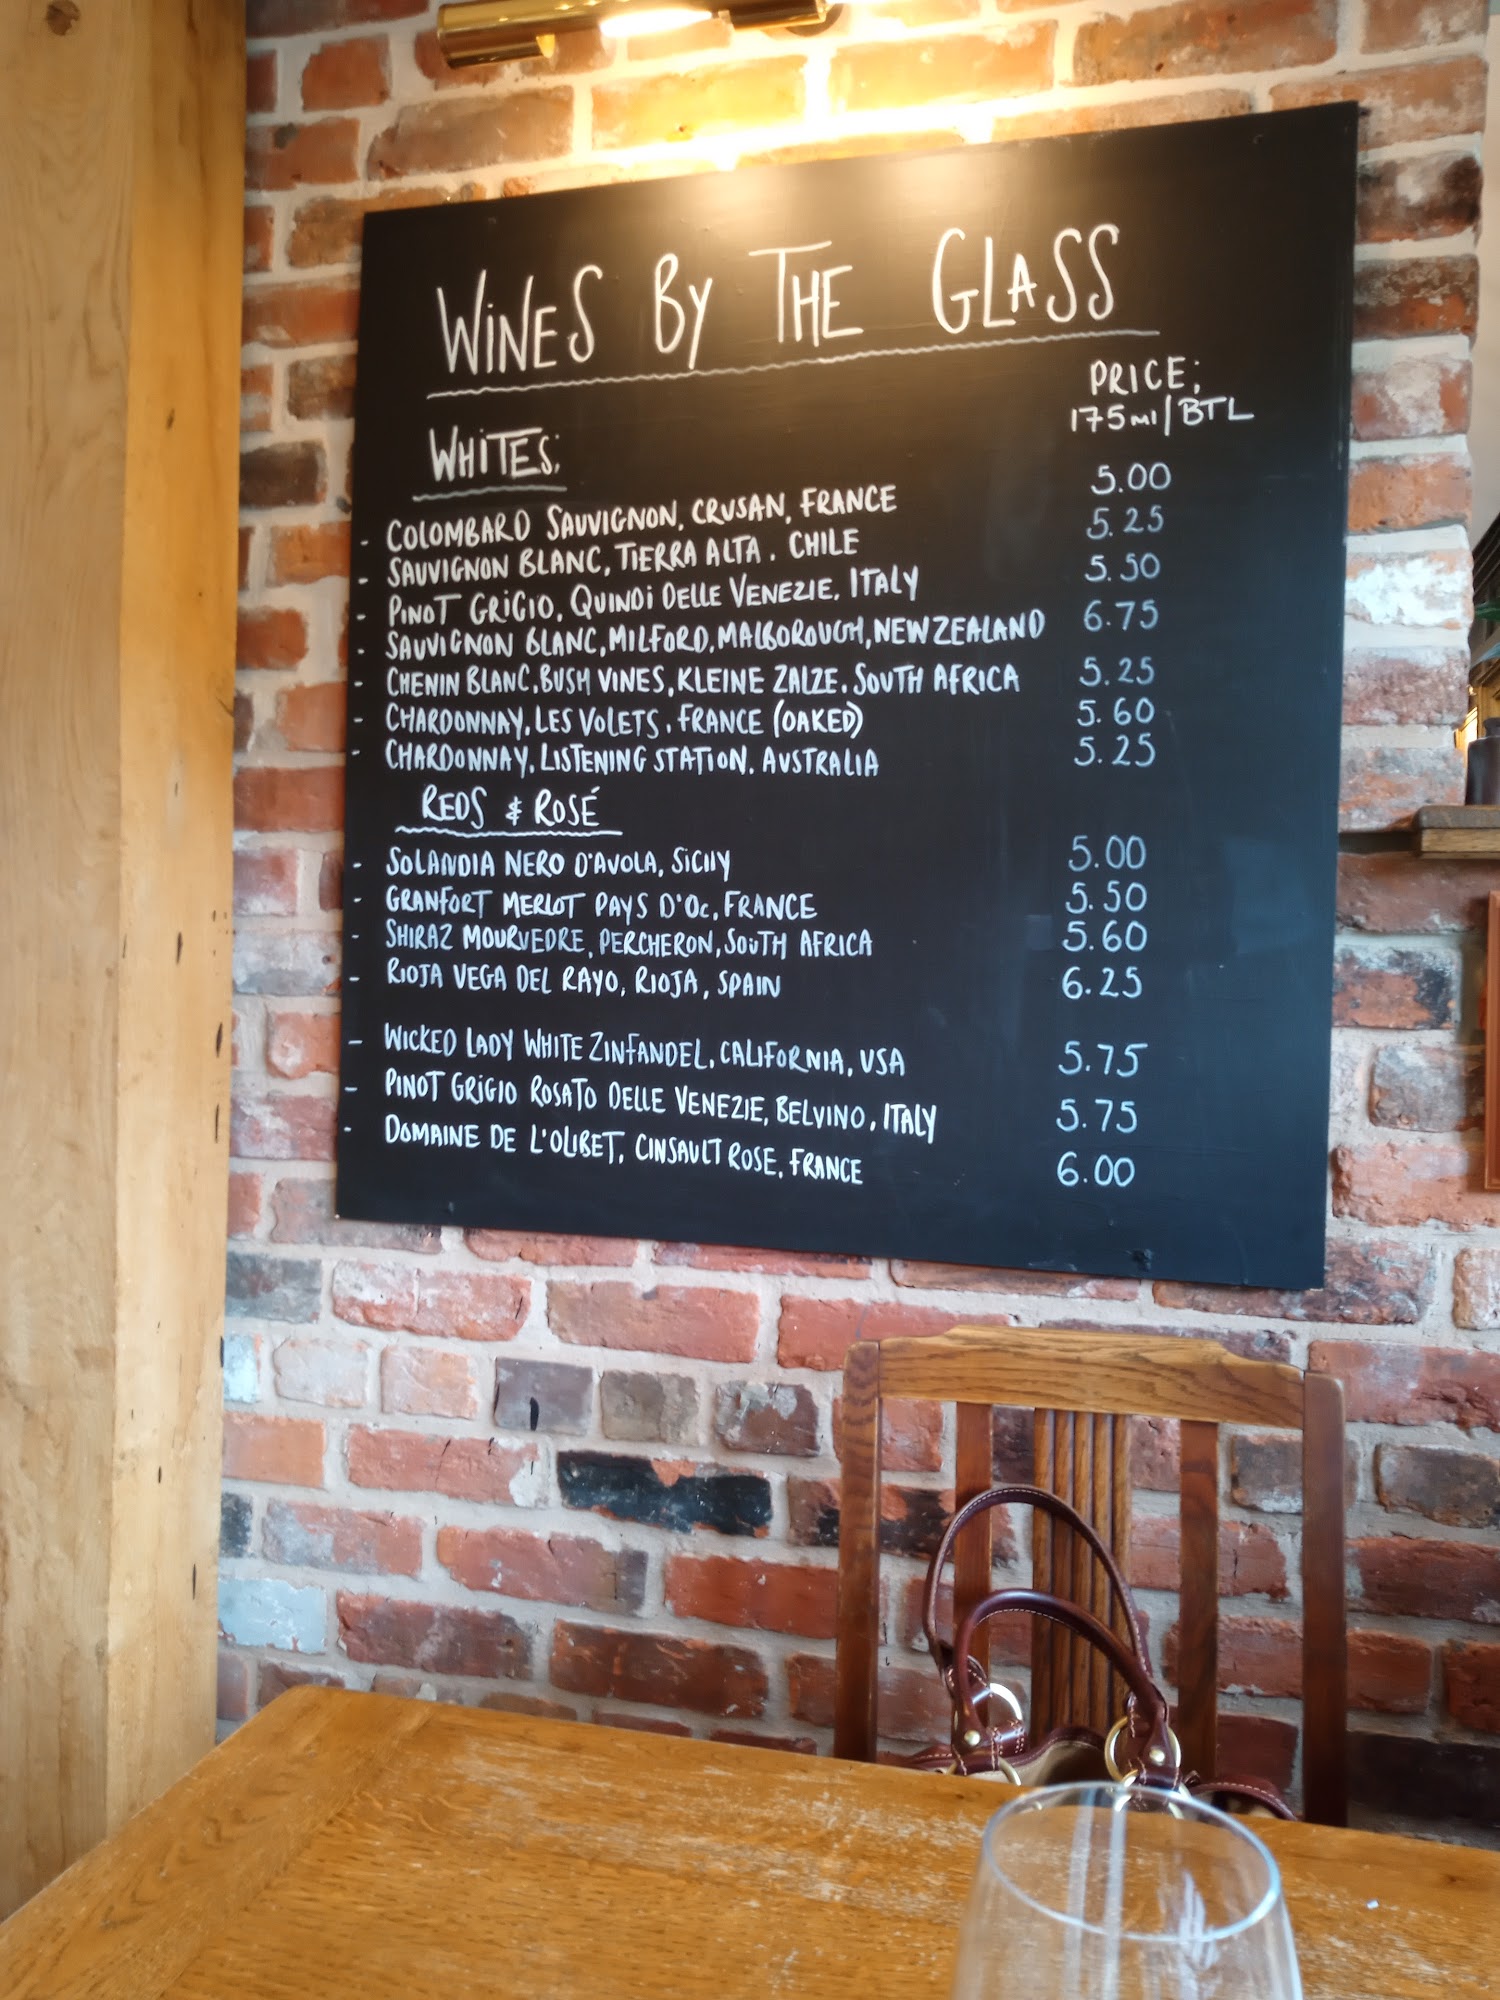 WINES BY THE GLASS
PRICE;
175ml/BTL
WHITES;
- COLOMBARD SAUVIGNON, CRUSAN, FRANCE 5.00
- SAUVIGNON BLANC, TIERRA ALTA. CHILE 5.25
- PINOT GRIGIO, QUINDI DELLE VENEZIE, ITALY 5.50
- SAUVIGNON BLANC, MILFORD, MALBOROUGH, NEW ZEALAND 6.75
- CHENIN BLANC, BUSH VINES, KLEINE ZALZE, SOUTH AFRICA 5.25
- CHARDONNAY, LES VOLETS, FRANCE (OAKED) 5.60
- CHARDONNAY, LISTENING STATION, AUSTRALIA 5.25
REDS & ROSÉ
- SOLANDIA NERO D'AVOLA, SICILY 5.00
- GRANFORT MERLOT PAYS D'OC, FRANCE 5.50
- SHIRAZ MOURVEDRE, PERCHERON, SOUTH AFRICA 5.60
- RIOJA VEGA DEL RAYO, RIOJA, SPAIN 6.25
- WICKED LADY WHITE ZINFANDEL, CALIFORNIA, USA 5.75
- PINOT GRIGIO ROSATO DELLE VENEZIE, BELVINO, ITALY 5.75
- DOMAINE DE L'OLIBET, CINSAULT ROSE, FRANCE 6.00